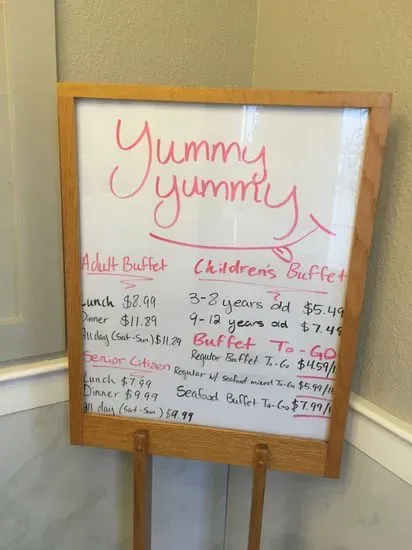 Yummy
yummy
Adult Buffet
Lunch $8.99
Dinner $11.89
All day (Sat-Sun) $11.89
Senior Citizen
Lunch $7.99
Dinner $9.99
All day (Sat-Sun) $9.99
Children's Buffet
3-8 years old $5.49
9-12 years old $7.49
Buffet To-GO
Regular Buffet To-Go $4.59/
Regular w/ seafood mixed To-Go $5.99/
Seafood Buffet To-Go $7.99/